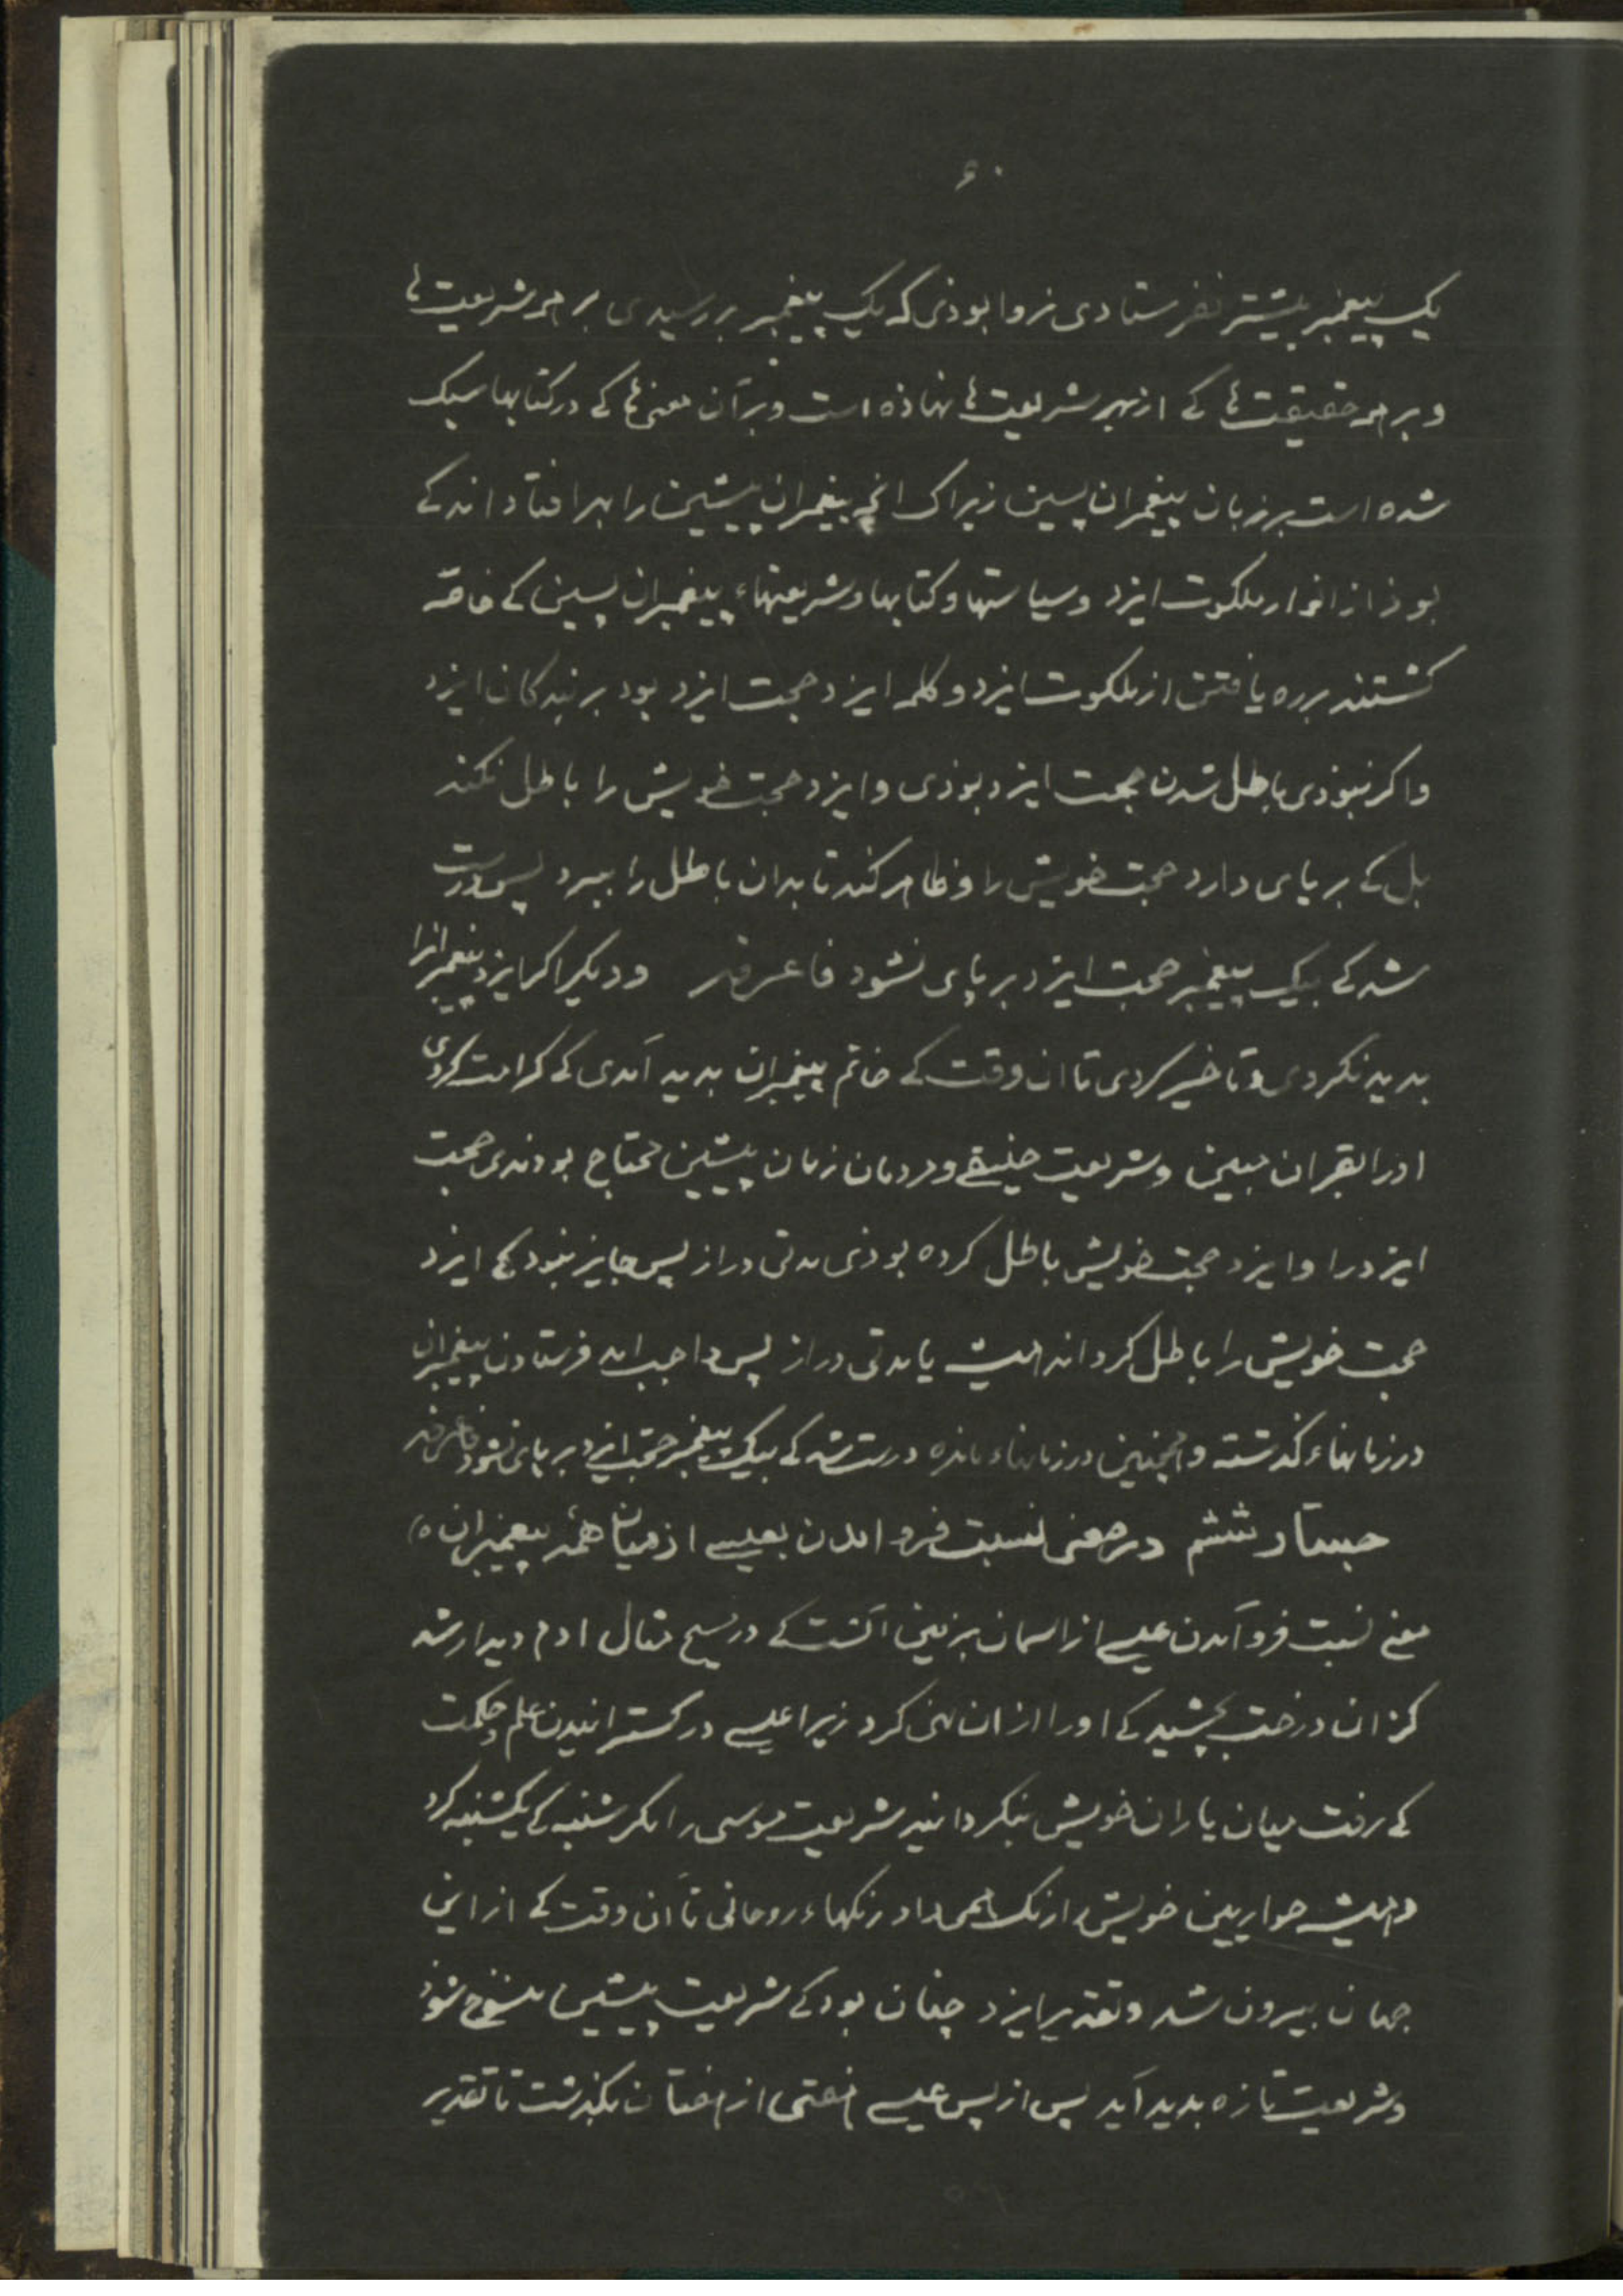 ۶۰
یک پیغمبر پیشتر نفرستادی نه روا بوذی که یک پیغمبر بررسیدی بر همه شریعت‌ها
و بر همه حقیقت‌ها کی از بهر شریعت‌ها نهاذه است و بر آن معنی‌ها کی در کتابها سبک
شده است بر زبان پیغمبران پسین زیراک انچه پیغمبران پیشین را بهر افتاد اند کی
بوذ از انوار ملکوت ایزد و سیاستها و کتابها و شریعتهاء پیغمبران پسین کی خاصه
کشتند بره یافتن از ملکوت ایزد و کلمه ایزد حجت ایزد بود بر بندکان ایزد
واکر نبوذی باطل شدن حجت ایزد بوذی و ایزد حجت خویش را باطل نکند
بل کی بر پای دارد حجت خویش را و ظاهر کند تا بدان باطل را ببرد پس درست
شد کی بیک پیغمبر حجت ایزد بر پای نشود فاعرفه و دیکر اکر ایزد پیغمبرانرا
بدید نکردی و تاخیر کردی تا ان وقت کی خاتم پیغمبران بدید آمدی کی کرامت کردی
اورا بقران مبین و شریعت حنیفی و مردمان زمان پیشین محتاج بودندی حجت
ایزد را و ایزد حجت خویش باطل کرده بوذی مدتی دراز پس جایز نبود کی ایزد
حجت خویش را باطل کرداند همیشه یا مدتی دراز پس واجب امد فرستادن پیغمبران
در زمانهاء کذشته و همچنین در زمانهاء مانده درست شد کی بیک پیغمبر حجت ایزد بر پای نشود فاعرفه
جستار ششم در معنی نسبت فرو امدن بعیسی از میان همه پیغمبران ه)
معنی نسبت فرو آمدن عیسی از اسمان بزمین آنست کی در مسیح مثال ادم دیدار شد
کز ان درخت بچشید کی اورا از ان نهی کرد زیرا عیسی در کسترانیدن علم و حکمت
کی رفت میان یاران خویش بنکردانید شریعت موسی را مکر شنبه کی یکشنبه کرد
و همیشه حواریین خویش را رنک همی داد رنکهاء روحانی تا آن وقت کی از این
جهان بیرون شد و تقدیر ایزد چنان بود کی شریعت پیشین منسوخ شوذ
و شریعت تازه بدید آید پس از پس عیسی هفتی از هفتان بکذشت تا تقدیر